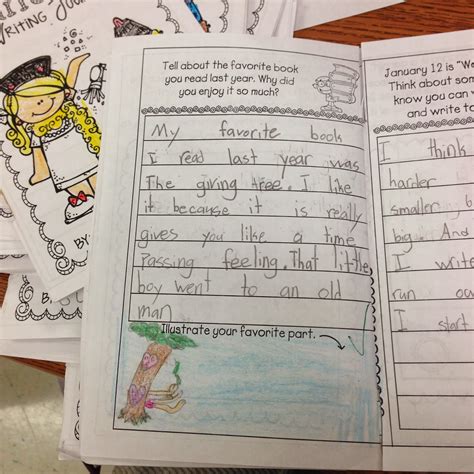 WRITING JOU
BY:
Tell about the favorite book
you read last year. Why did
you enjoy it so much?
My favorite book
I read last year was
The giving tree. I like
it because it is really
gives you like a time
Passing feeling. That little
boy went to an old
man
Illustrate your favorite part.
January 12 is "We
Think about som
know you can
and write to
I think
harder
smaller
big. And
I write
run ou
I start